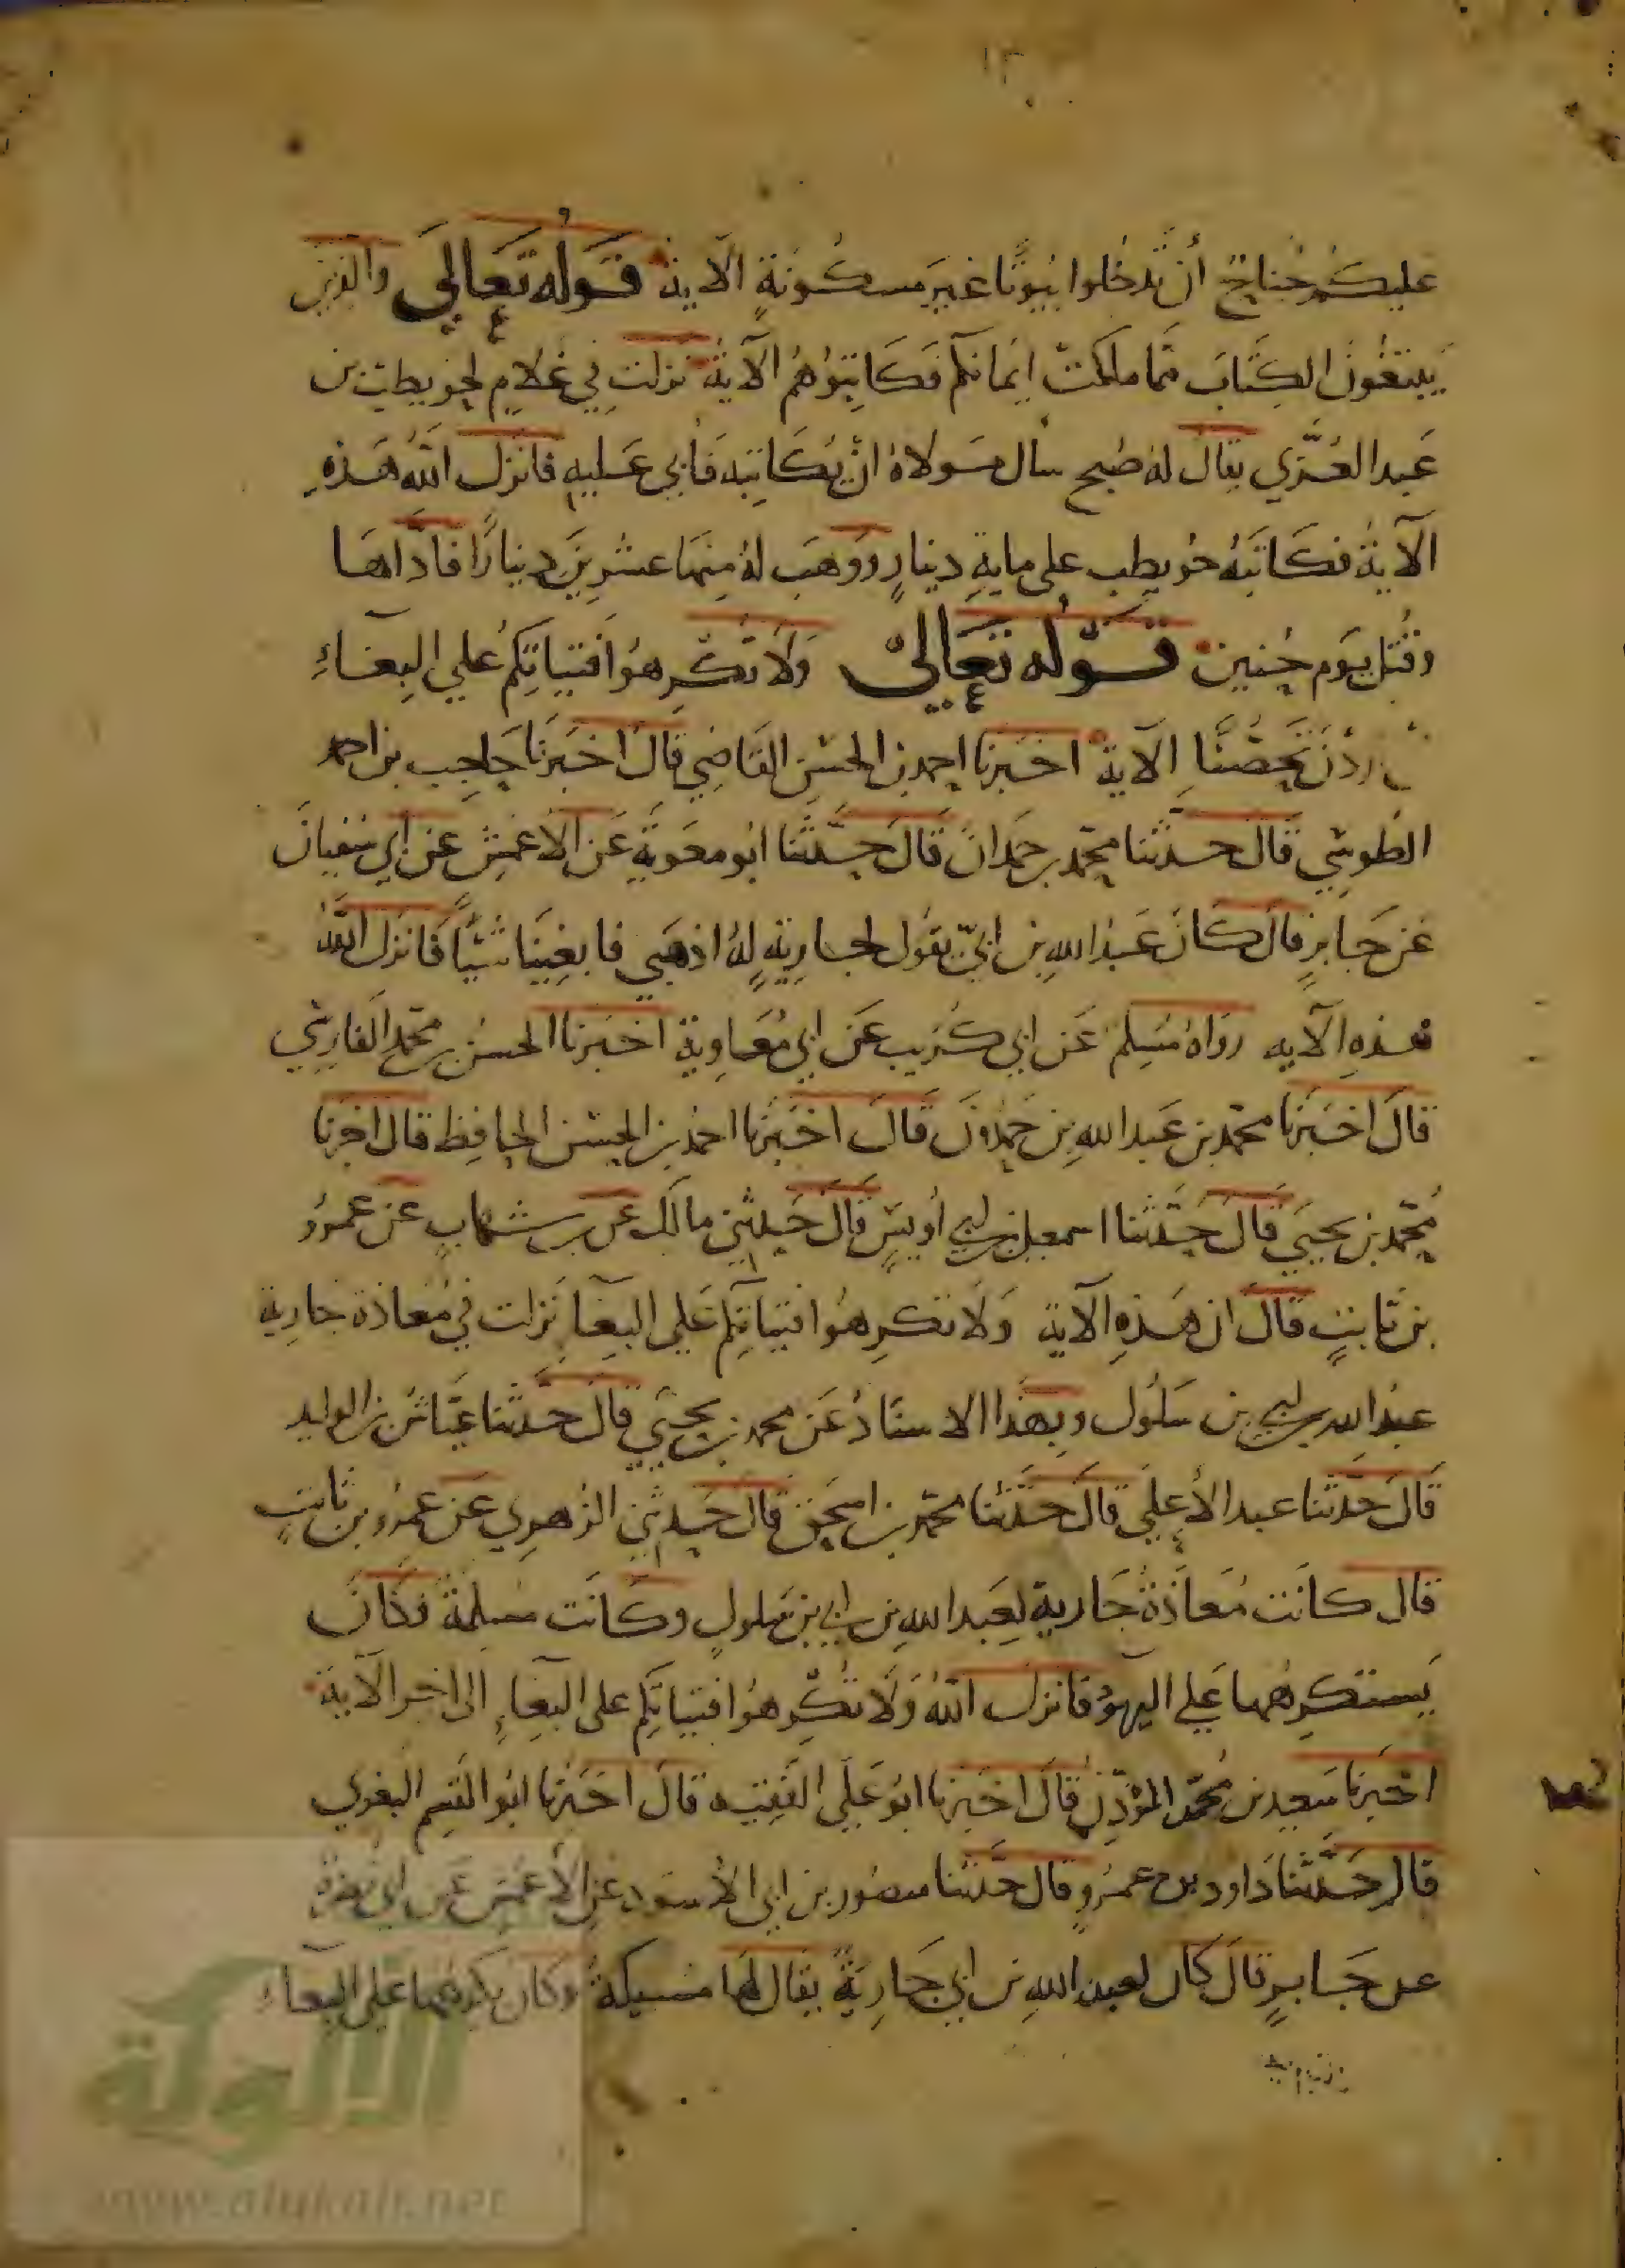 ١٣٠
عليكم جناح أن تدخلوا بيوتا غير مسكونة الآية قوله تعالى والذين
يبتغون الكتاب مما ملكت ايمانكم فكاتبوهم الآية نزلت في غلام لحويطب بن
عبد العزي يقال له صبح سأل مولاه ان يكاتبه فأبي عليه فانزل الله هذه
الآية فكاتبه حويطب علي ماية دينار ووهب له منها عشرين دينارا فادّاها
وقتل يوم حنين قوله تعالى ولا تكرهوا فتياتكم علي البغاء
ان اردن تحصنا الآية اخبرنا احمد بن الحسن القاضي قال اخبرنا حاجب بن احمد
الطوسي قال حدثنا محمد بن حمدان قال حدثنا ابو معوية عن الاعمش عن ابي سفيان
عن جابر قال كان عبد الله بن ابيّ يقول لجارية له اذهبي فابغينا شيئا فانزل الله
هذه الآية رواه مسلم عن ابي كريب عن ابي معاوية اخبرنا الحسن بن محمد الفارسي
قال اخبرنا محمد بن عبد الله بن حمدون قال اخبرنا احمد بن الحسن الحافظ قال اخبرنا
محمد بن يحيي قال حدثنا اسمعيل بن ابي أويس قال حدثني مالك عن بن شهاب عن عمرو
بن ثابت قال ان هذه الآية ولا تكرهوا فتياتكم علي البغا نزلت في معاذة جارية
عبد الله بن ابي بن سلول وبهذا الاسناد عن محمد بن يحيي قال حدثنا عياش بن الوليد
قال حدثنا عبد الأعلي قال حدثنا محمد بن اسحق قال حدثني الزهري عن عمرو بن ثابت
قال كانت معاذة جارية لعبد الله بن ابي بن سلول وكانت مسلمة فكان
يستكرهها علي البهو فانزل الله ولا تكرهوا فتياتكم على البغاء الى اخر الآية
اخبرنا سعيد بن محمد المؤذن قال اخبرنا ابو علي الفقيه قال اخبرنا ابو القسم البغوي
قال حدثنا داود بن عمرو قال حدثنا منصور بن ابي الأسود عن الأعمش عن ابي نضرة
عن جابر قال كان لعبد الله بن ابي جارية يقال لها مسيكة وكان يكرهها علي البغاء
الألوكة
www.alukah.net